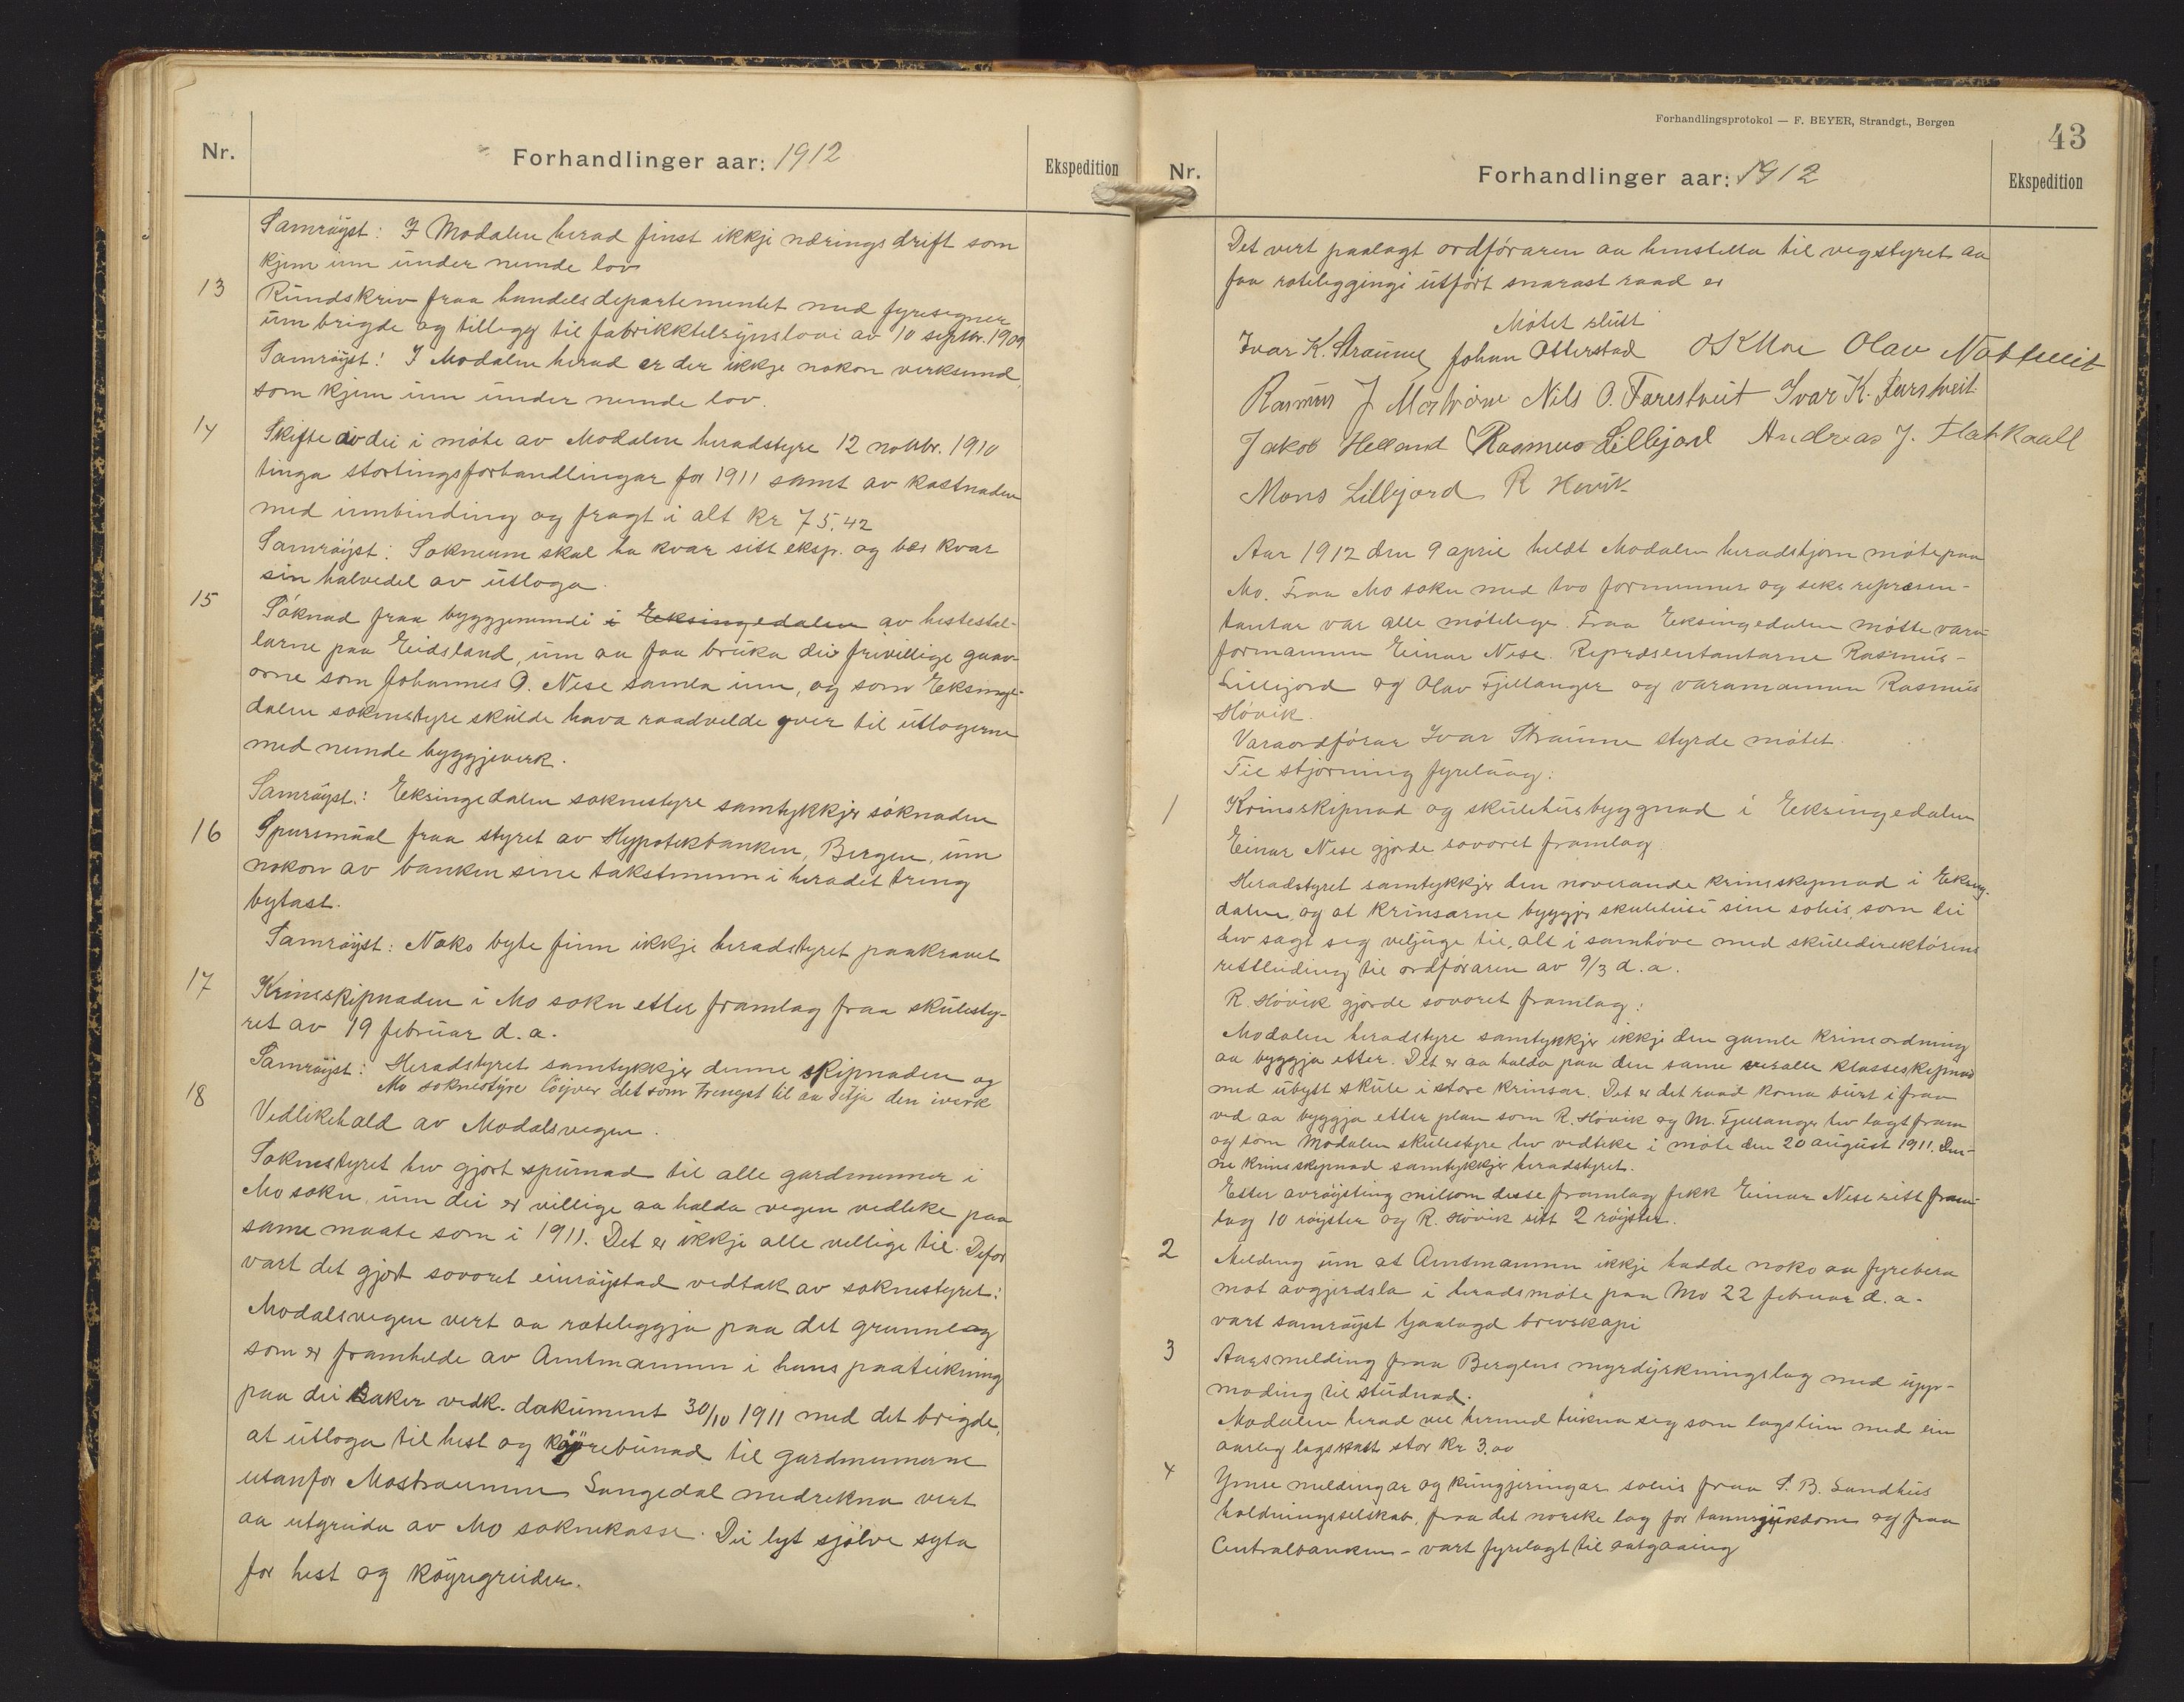 Nr.
Forhandlinger aar: 1912
Ekspedition
Samrøyst: I Modalen herad finst ikkje næringsdrift som
kjem inn under nemde lov
13 Rundskriv fraa handelsdepartementet med fyresegner
um brigde og tillegg til fabrikktilsynslovi av 10 septbr. 1909
Samrøyst! I Modalen herad er der ikkje nokon verksemd,
som kjem inn under nemde lov.
14 Skifte av dei i møte av Modalen heradstyre 12 novbr. 1910
tinga stortingsforhandlingar for 1911 samt av kostnaden
med innbinding og fragt i alt kr 75.42
Samrøyst: Soknerne skal ha kvar sitt eksp. og ber kvar
sin halvedel av utloga.
15 Søknad fraa byggjenemdi i Eeksingedalen av hestestal-
larne paa Eidsland, um aa faa bruka dei frivillige gaav-
orne som Johannes O. Nese samla inn, og som Eksinge-
dalen soknestyre skulde hava raadvelde yver til utlogerne
med nemde byggjeverk.
Samrøyst.: Eeksingedalen soknestyre samtykkjer søknaden
16 Spursmaal fraa styret av Hypotekbanken, Bergen, um
nokon av banken sine takstmenn i heradet treng
bytast.
Samrøyst: Noko byte finn ikkje heradstyret paakravet
17 Krinsskipnaden i Mo sokn etter framlag fraa skulesty-
ret av 19 februar d. a.
Samrøyst: Heradstyret samtykkjer denne skipnaden og
Mo soknestyre løyver det som trengst til aa setja den iverk
18 Vedlikehald av Modalsvegen.
Soknestyret hev gjort spurnad til alle gardmenner i
Mo sokn, um dei er villige aa halda vegen vedlike paa
same maate som i 1911. Det er ikkje alle villige til. Defor
vart det gjort sovoret einrøystad vedtak av soknestyret:
Modalsvegen vert aa roteleggja paa det grunnlag
som er framhelde av Amtmannen i hans paateikning
paa dei saker vedk. dokument 30/10 1911 med det brigde,
at utloga til hest og køyrebunad til gardmennerne
utanfor Mostraumen Sangedal medrekna vert
aa utgreida av Mo soknekasse. Dei lyt sjølve syta
for hest og køyregreider.
Forhandlingsprotokol — F. BEYER, Strandgt., Bergen
43
Nr.
Forhandlinger aar: 1912
Ekspedition
Det vert paalagt ordføraren aa henstella til vegstyret aa
faa roteleggingi utført snarast raad er
Møtet slutt
Ivar K. Straume Johan Otterstad O K Moe Olav Nottveit
Rasmus J Mostrøm Nils O. Farestveit Ivar K. Farestveit
Jakob Helland Rasmus Lillejord Andreas J. Flatkvall
Mons Lillejord R Høvik
Aar 1912 den 9 april heldt Modalen heradstjorn møte paa
Mo. Fraa Mo sokn med tvo formenner og seks repræsen-
tantar var alle møtelege. Fraa Eeksingedalen møtte vara-
formannen Einar Nese. Repræsentantarne Rasmus
Lillejord og Olav Fjellanger og varamannen Rasmus
Høvik.
Varaordførar Ivar Straume styrde møtet.
Til stjorning fyrelaag:
1 Krinsskipnad og skulehusbyggnad i Eeksingedalen
Einar Nese gjorde sovoret framlag
Heradstyret samtykkjer den noverande krinsskipnad i Eksing-
dalen, og at krinsarne byggjer skulehusi sine soleis, som dei
hev sagt seg viljuge til, alt i samhøve med skuledirektørens
rettleiding til ordføraren av 9/3 d. a.
R. Høvik gjorde sovoret framlag:
Modalen heradstyre samtykkjer ikkje den gamle krinsordning
aa byggja etter. Det er aa halda paa den same klasseskipnad
med ubytt skule i store krinsar. Det er det raad koma burt ifraa
ved aa byggja etter plan som R. Høvik og M. Fjellanger hev lagt fram
og som Modalen skulestyre hev vedteke i møte den 20 august 1911. Den-
ne krinsskipnad samtykkjer heradstyret.
Etter avrøysting millom desse framlag fekk Einar Nese sitt fram-
lag 10 røyster og R. Høvik sitt 2 røyster.
2 Melding um at Amtmannen ikkje hadde noko aa fyrebera
mot avgjerdsla i heradsmøte paa Mo 22 februar d. a.
vart samrøyst hjaalagd brevskapi
3 Aarsmelding fraa Bergens myrdyrkningslag med upp-
moding til studnad.
Modalen herad vil hermed teikna seg som lagslim med ein
aarleg lagskatt stor kr 3.00
4 Ymse meldingar og kungjeringar soleis fraa S. B. Sundhus
holdningsselskab, fraa det norske lag for tannsjukdom og fraa
Centralbanken - vart fyrelagt til aatgaaing